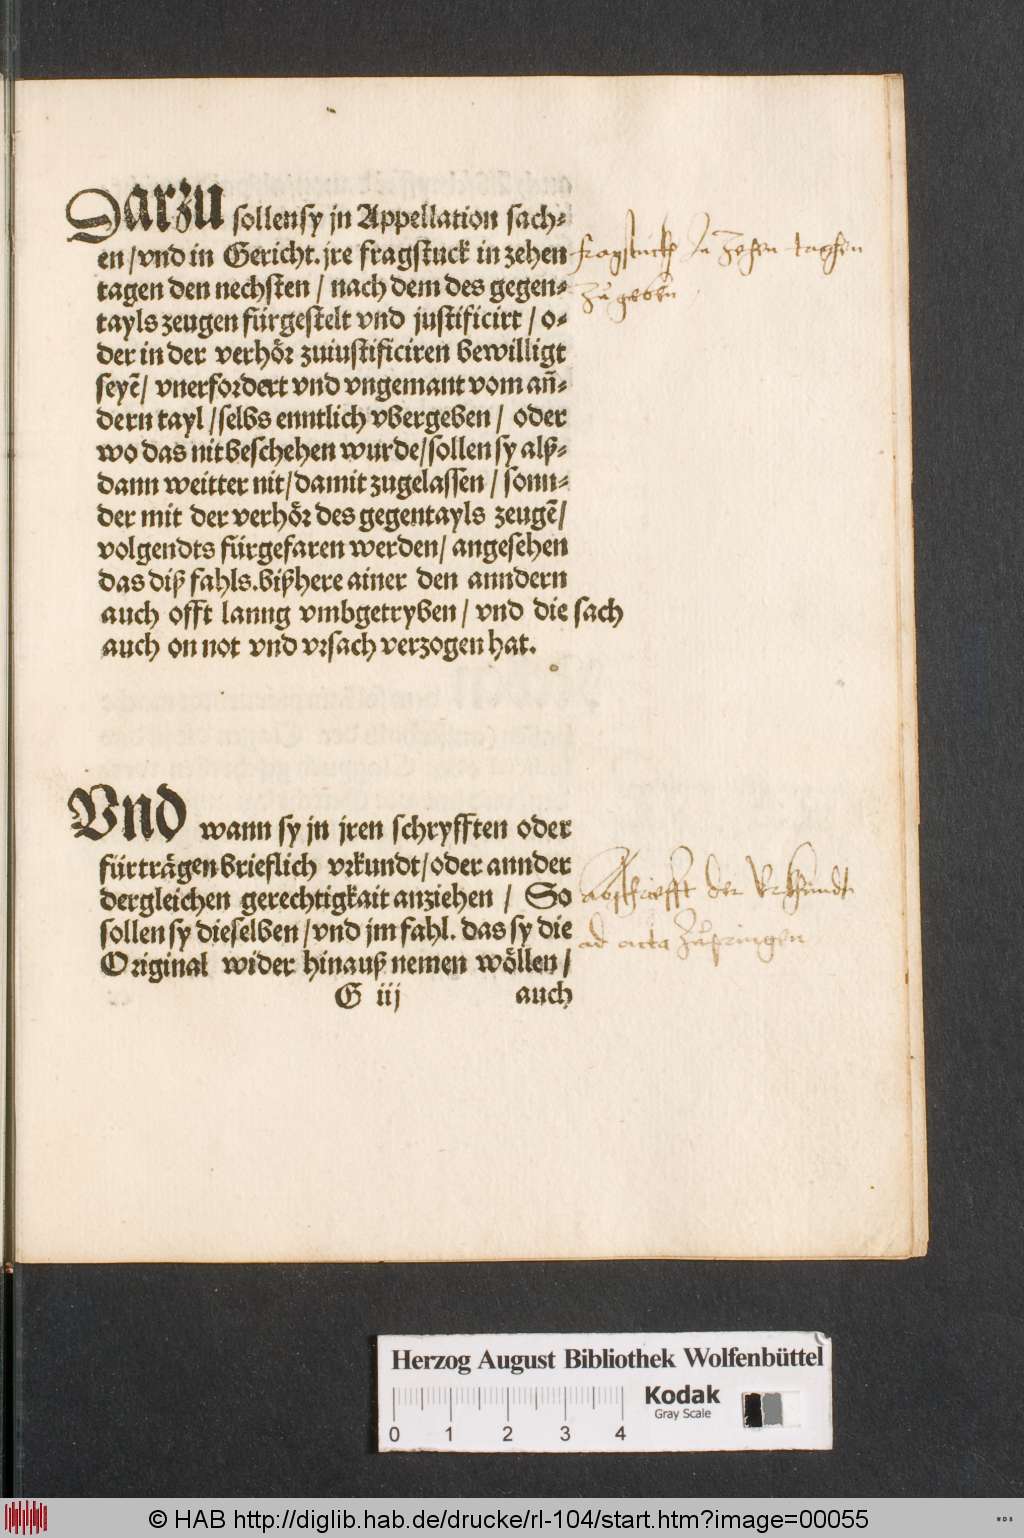 Darzu sollen sy jn Appellation sach⸗
en / vnd in Gericht. jre fragstuck in zehen
tagen den nechsten / nach dem des gegen⸗
tayls zeugen fürgestelt vnd justificirt / o⸗
der in der verhör zuiustificiren bewilligt
seyē / vnerfordert vnd vngemant vom añ⸗
dern tayl / selbs enntlich vbergeben / oder
wo das nit beschehen wurde / sollen sy alß⸗
dann weitter nit / damit zugelassen / sonn⸗
der mit der verhör des gegentayls zeugē /
volgendts fürgefaren werden / angesehen
das diß fahls. bißhere ainer den anndern
auch offt lanng vmbgetryben / vnd die sach
auch on not vnd vrsach verzogen hat.
fragstuckh In Zehen taghen
Zu geben
Vnd wann sy jn jren schryfften oder
fürträgen brieflich vrkundt / oder annder
dergleichen gerechtigkait anziehen / So
sollen sy dieselben / vnd jm fahl. das sy die
Original wider hinauß nemen wöllen /
G iij auch
Abschriefft der Vrkhundt
ad acta Zupringen
Herzog August Bibliothek Wolfenbüttel
Kodak
Gray Scale
0 1 2 3 4
© HAB http://diglib.hab.de/drucke/rl-104/start.htm?image=00055